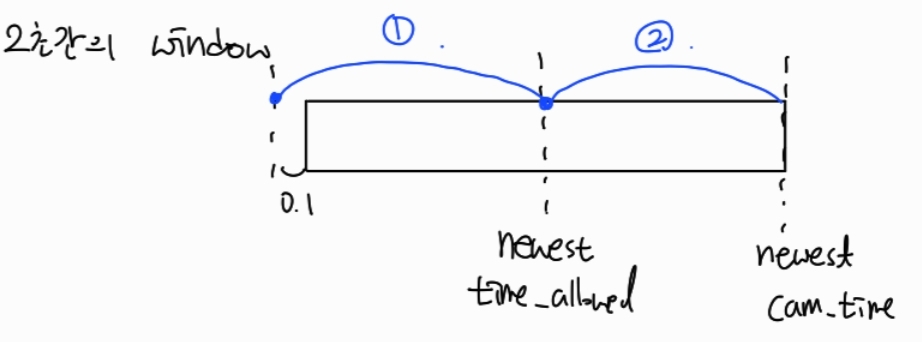 2초간의 window
①
②
0.1
newest
time_allowed
newest
cam_time